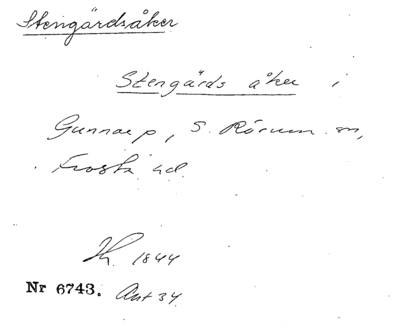 Stengärdsåker
Stengärds åker i
Gunnarp, S. Rörum sn,
Frosta hd
Lh. 1844
Nr 6743. Ant 34